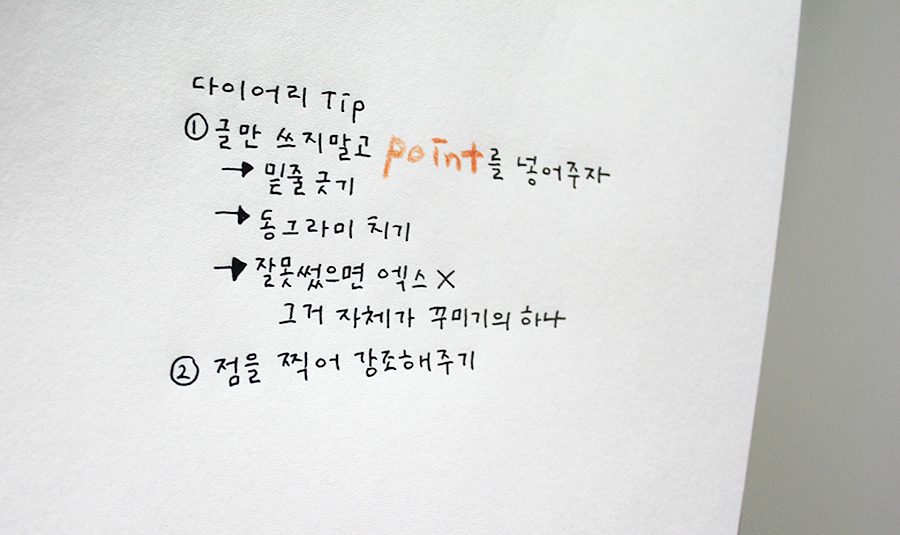 다이어리 Tip
① 글만 쓰지말고 point를 넣어주자
→ 밑줄 긋기
→ 동그라미 치기
→ 잘못썼으면 엑스 X
그거 자체가 꾸미기의 하나
② 점을 찍어 강조해주기